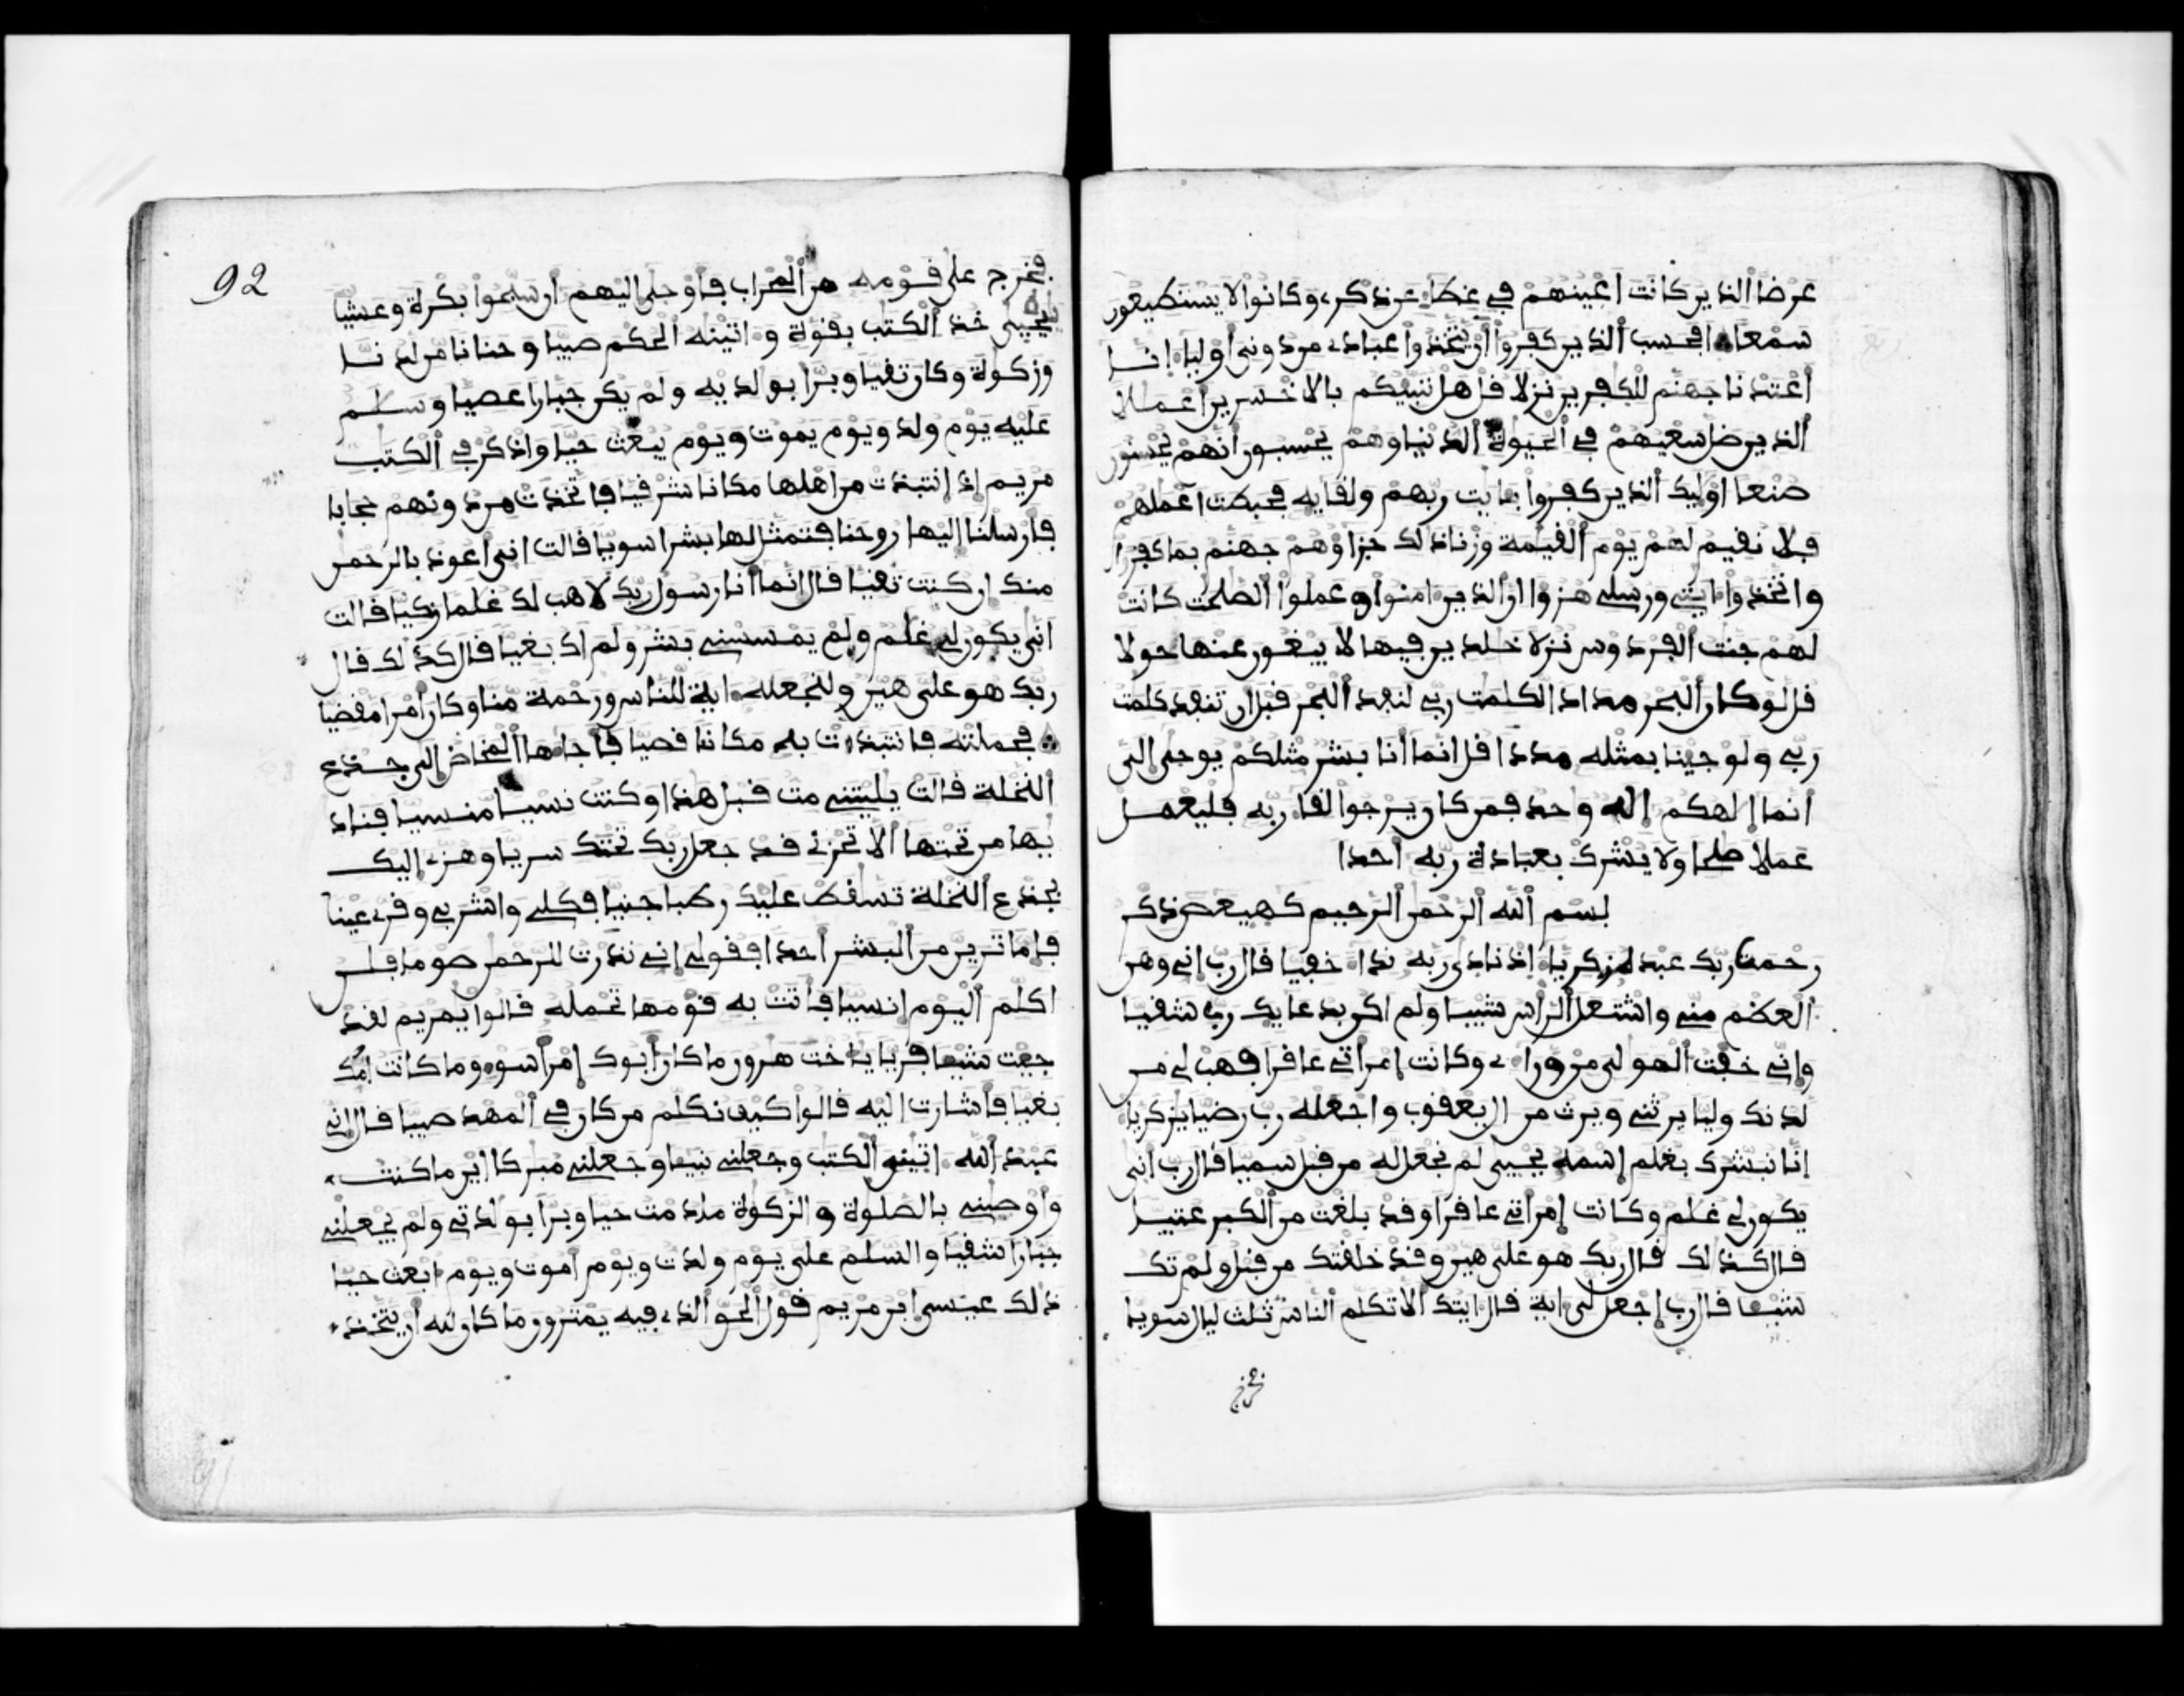 عرضا الذين كانت اعينهم في غطاء عن ذكرى وكانوا لا يستطيعون
سمعا افحسب الذين كفروا ان يتخذوا عبادى من دوني اولياء انا
اعتدنا جهنم للكفرين نزلا قل هل ننبيكم بالاخسرين اعملا
الذين ضل سعيهم في الحيوة الدنيا وهم يحسبون انهم يحسنون
صنعا اوليك الذين كفروا بايت ربهم ولقايه فحبطت اعملهم
فلا نقيم لهم يوم القيمة وزنا ذلك جزاؤهم جهنم بما كفروا
واتخذوا ايتي ورسلي هزوا ان الذين امنوا وعملوا الصلحت كانت
لهم جنت الفردوس نزلا خلدين فيها لا يبغون عنها حولا
قل لو كان البحر مدادا لكلمت ربي لنفد البحر قبل ان تنفد كلمت
ربي ولو جينا بمثله مددا قل انما انا بشر مثلكم يوحى الي
انما الهكم اله واحد فمن كان يرجوا لقاء ربه فليعمل
عملا صلحا ولا يشرك بعبادة ربه احدا
بسم الله الرحمن الرحيم كهيعص ذكر
رحمت ربك عبده زكرياء اذ نادى ربه نداء خفيا قال رب اني وهن
العظم مني واشتعل الراس شيبا ولم اكن بدعايك رب شقيا
واني خفت المولي من وراءى وكانت امراتي عاقرا فهب لي من
لدنك وليا يرثني ويرث من ال يعقوب واجعله رب رضيا يزكرياء
انا نبشرك بغلم اسمه يحيى لم نجعل له من قبل سميا قال رب انى
يكون لي غلم وكانت امراتي عاقرا وقد بلغت من الكبر عتيا
قال كذلك قال ربك هو علي هين وقد خلقتك من قبل ولم تك
شيئا قال رب اجعل لي اية قال ايتك الا تكلم الناس ثلث ليال سويا
فخرج
92
فخرج على قومه من المحراب فاوحى اليهم ان سبحوا بكرة وعشيا
ييحيى خذ الكتب بقوة واتينه الحكم صبيا وحنانا من لدنا
وزكوة وكان تقيا وبرا بولديه ولم يكن جبارا عصيا وسلم
عليه يوم ولد ويوم يموت ويوم يبعث حيا واذكر في الكتب
مريم اذ انتبذت من اهلها مكانا شرقيا فاتخذت من دونهم حجابا
فارسلنا اليها روحنا فتمثل لها بشرا سويا قالت اني اعوذ بالرحمن
منك ان كنت تقيا قال انما انا رسول ربك لاهب لك غلما زكيا قالت
انى يكون لي غلم ولم يمسسني بشر ولم اك بغيا قال كذلك قال
ربك هو علي هين ولنجعله اية للناس ورحمة منا وكان امرا مقضيا
فحملته فانتبذت به مكانا قصيا فاجاءها المخاض الى جذع
النخلة قالت يليتني مت قبل هذا وكنت نسيا منسيا فناد
يها من تحتها الا تحزني قد جعل ربك تحتك سريا وهزى اليك
بجذع النخلة تسقط عليك رطبا جنيا فكلي واشربي وقرى عينا
فاما ترين من البشر احدا فقولي اني نذرت للرحمن صوما فلن
اكلم اليوم انسيا فاتت به قومها تحمله قالوا يمريم لقد
جئت شيئا فريا ياخت هرون ما كان ابوك امرا سوء وما كانت امك
بغيا فاشارت اليه قالوا كيف نكلم من كان في المهد صبيا قال اني
عبد الله اتيني الكتب وجعلني نبيئا وجعلني مبركا اين ما كنت
واوصيني بالصلوة والزكوة ما دمت حيا وبرا بولدتي ولم يجعلني
جبارا شقيا والسلم علي يوم ولدت ويوم اموت ويوم ابعث حيا
ذلك عيسى ابن مريم قول الحق الذى فيه يمترون ما كان لله ان يتخذ